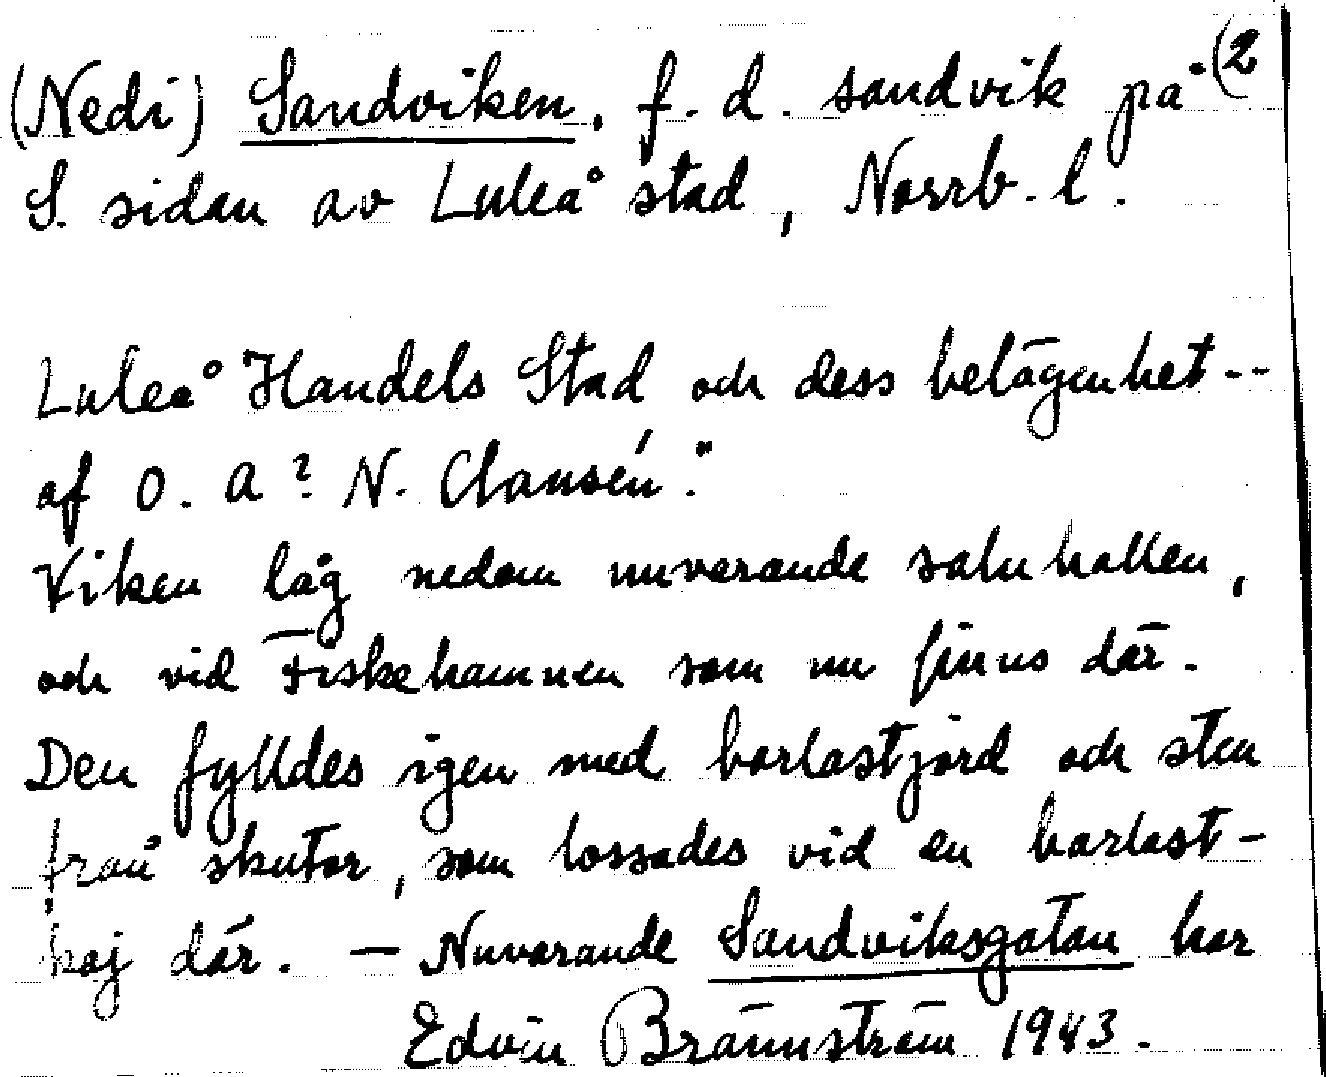 (Nedi) Sandviken, f. d. sandvik på (2
S. sidan av Luleå stad, Norrb. l.
Luleå Handels Stad och dess belägenhet --
af O. A? N. Clausén."
Viken låg nedom nuvarande saluhallen,
och vid Fiskehamnen som nu finns där.
Den fylldes igen med barlastjord och sten
från skutor, som lossades vid en barlast-
kaj där. — Nuvarande Sandviksgatan har
Edvin Brännström 1943.